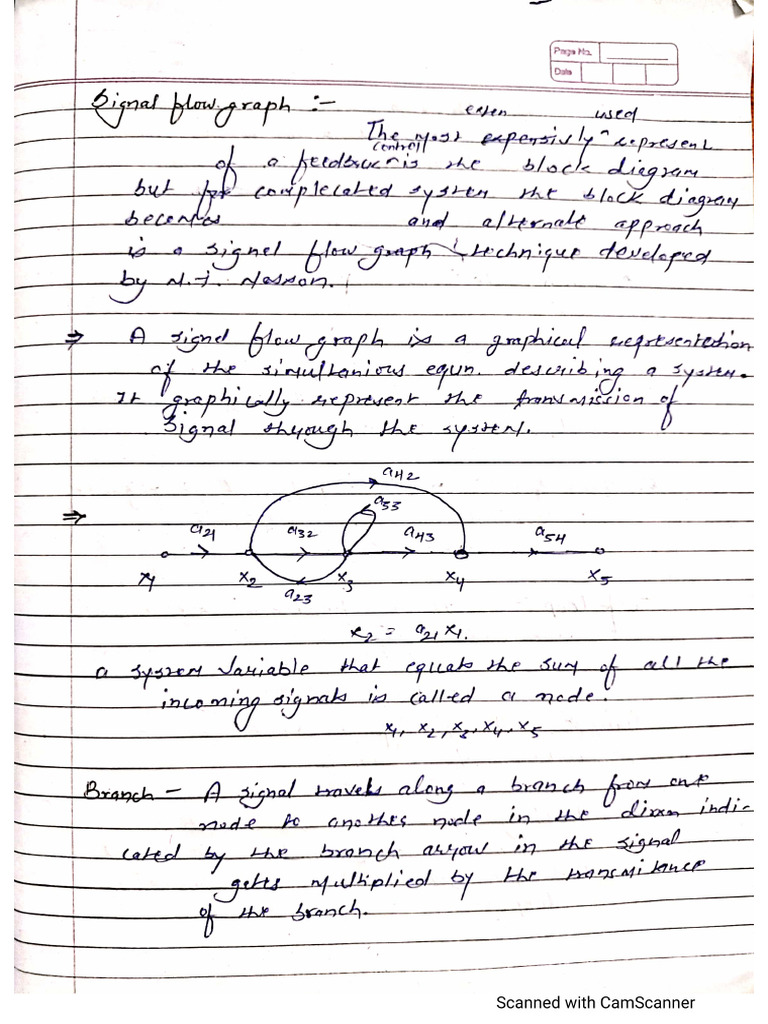 Page No.
Date
Signal flow graph :-
used
The most expensivly represent
(control)
of a feedback is the block diegram
but for complecated system the block diagram
becomes and alternate approach
is a signel flow graph technique developed
by
⇒ A signel flow graph is a graphical representation
of the simultanious equn. describing a system.
It graphically represent the transmission of
Signal through the system.
⇒
a42
a33
a21 a32 a43 a54
x1 x2 x3 x4 x5
a23
x2 = a21 x1.
a system variable that equals the sum of all the
incoming signals is called a node.
x1, x2, x3, x4, x5
Branch - A signal travels along a branch from one
node to another node in the dirxn indi-
cated by the branch arrow in the signal
getts multiplied by the transmitance
of the branch.
Scanned with CamScanner